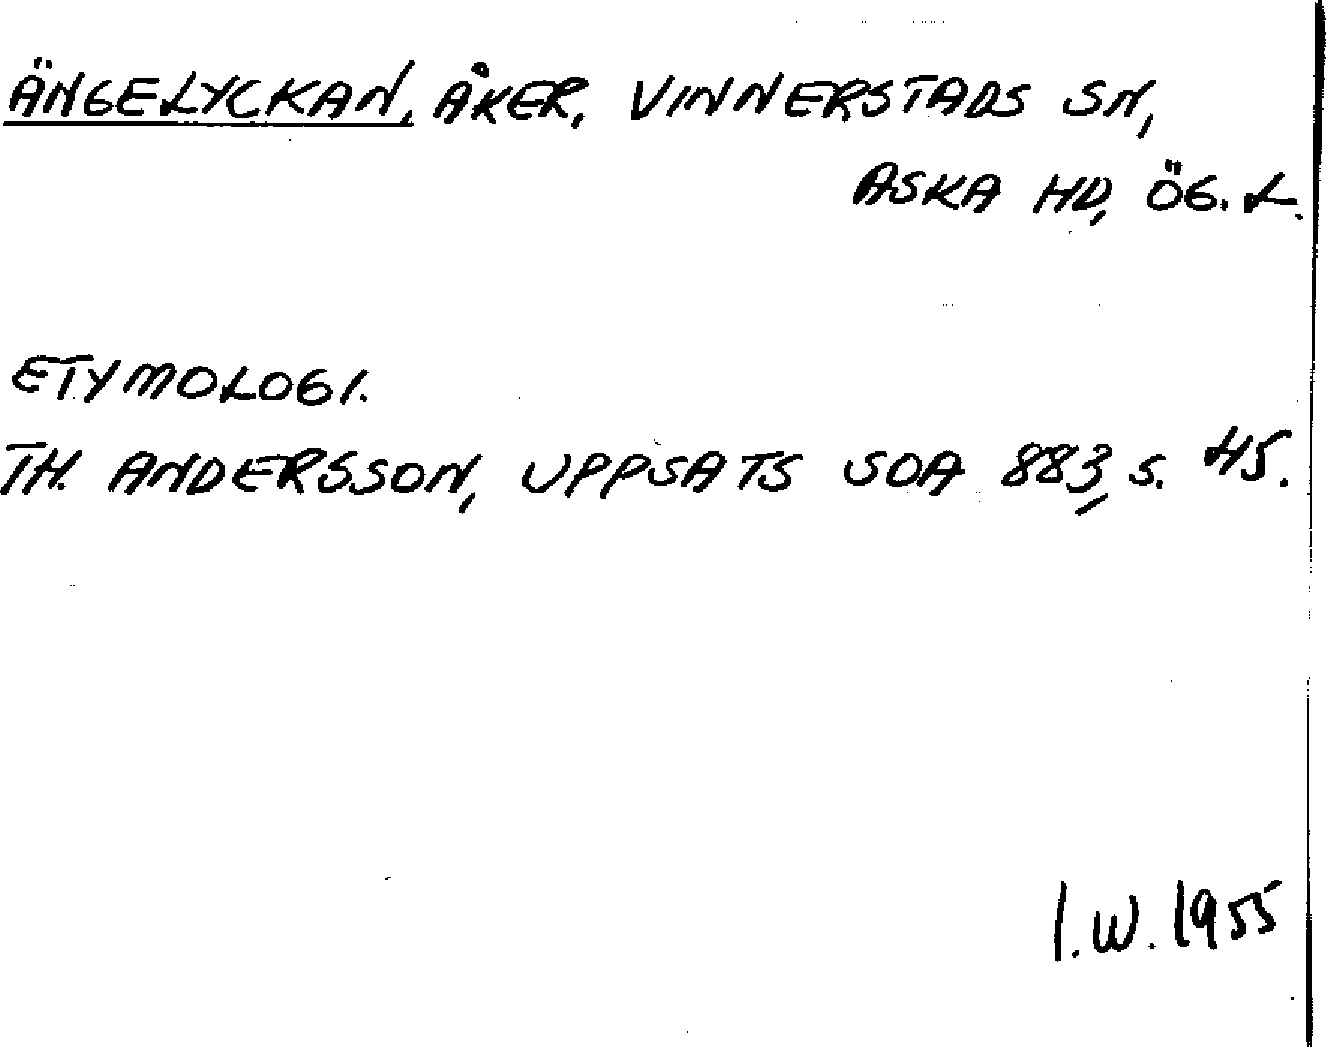 ÄNGELYCKAN, ÅKER, VINNERSTADS SN,
ASKA HD, ÖG. L.
ETYMOLOGI.
TH. ANDERSSON, UPPSATS SOA 883, S. 45.
I.W. 1955